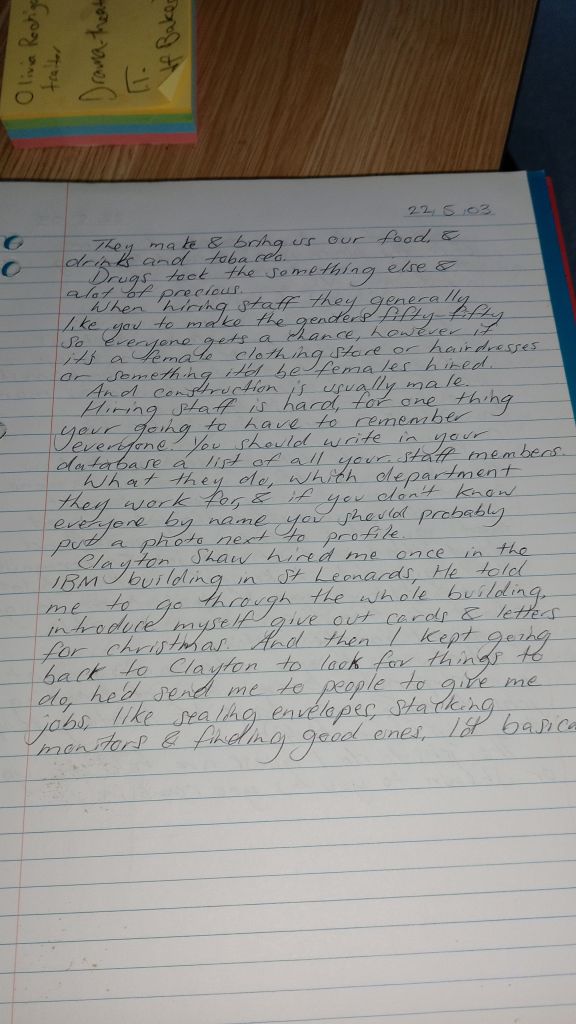 Olivia Rodrigo
traitor
Drama-theat
IT.
of Baker
22, 5, 03
They make & bring us our food, &
drinks and tobacco.
Drugs took the something else &
alot of precious.
When hiring staff they generally
like you to make the genders fifty-fifty
so everyone gets a chance, however if
it's a female clothing store or hairdresses
or something it'd be females hired.
And construction is usually male.
Hiring staff is hard, for one thing
your going to have to remember
everyone. You should write in your
database a list of all your staff members.
What they do, which department
they work for, & if you don't know
everyone by name you should probably
put a photo next to profile.
Clayton Shaw hired me once in the
IBM building in St Leonards, He told
me to go through the whole building,
introduce myself give out cards & letters
for christmas. And then I kept going
back to Clayton to look for things to
do, he'd send me to people to give me
jobs, like sealing envelopes, stacking
monitors & finding good ones, basica